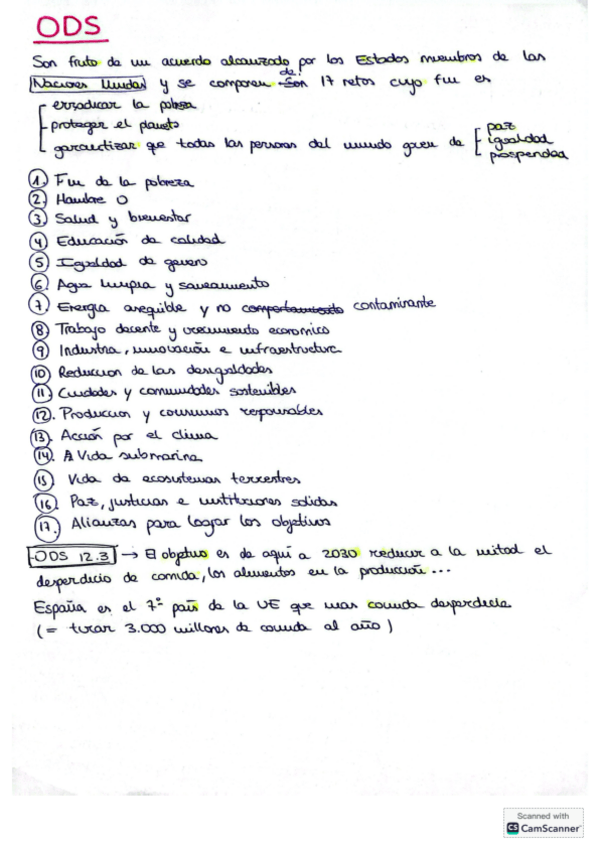 ODS
Son fruto de un acuerdo alcanzado por los Estados miembros de las
Naciones Unidas y se componen de 17 retos cuyo fin es
erradicar la pobreza
proteger el planeta
garantizar que todas las personas del mundo gocen de paz
igualdad
prosperidad
1. Fin de la pobreza
2. Hambre 0
3. Salud y bienestar
4 Educación de calidad
5 Igualdad de genero
6. Agua limpia y saneamiento
7. Energia asequible y no contaminante
8 Trabajo decente y crecimiento economico
9 Industria, innovación e infraestructura
10 Reduccion de las desigualdades
11. Ciudades y comunidades sostenibles
12. Produccion y consumos responsables
13. Acción por el clima
14. Vida submarina
15 Vida de ecosistemas terrestres
16. Paz, justicia e instituciones solidas
17. Alianzas para lograr los objetivos
ODS 12.3 → El objetivo es de aquí a 2030 reducir a la mitad el
desperdicio de comida, los alimentos en la producción ...
España es el 7º país de la UE que mas comida desperdicia
(= tirar 3.000 millones de comida al año)
Scanned with
CS CamScanner